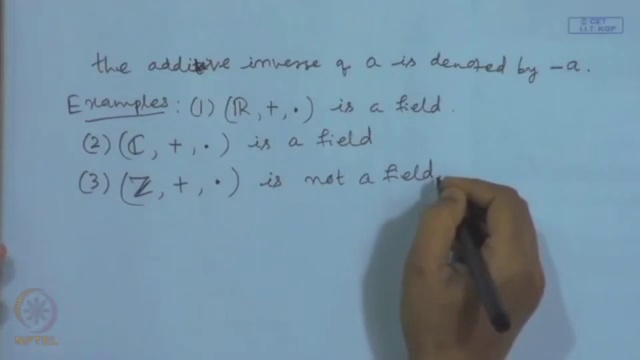 © CET
I.I.T. KGP
the additive inverse of a is denoted by -a.
Examples: (1) (ℝ, +, ·) is a field.
(2) (ℂ, +, ·) is a field
(3) (ℤ, +, ·) is not a field.
NPTEL